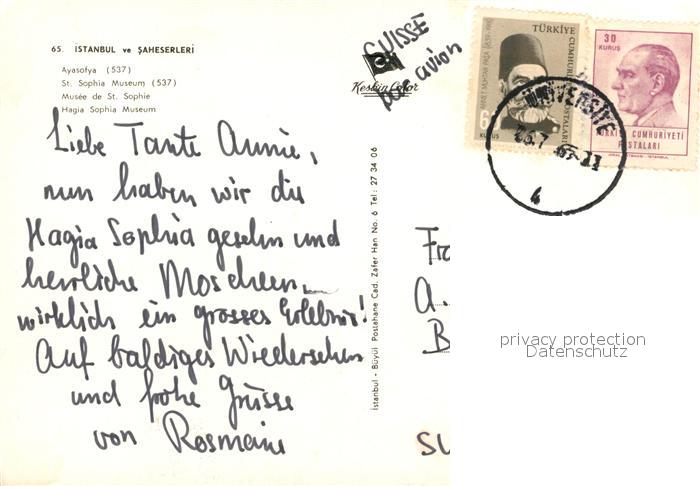 65. İSTANBUL ve ŞAHESERLERİ
Ayasofya (537)
St. Sophia Museum (537)
Musée de St. Sophie
Hagia Sophia Museum
Keskin Color
SUISSE
par avion
TÜRKİYE
60
KURUŞ
30
KURUŞ
TÜRKİYE CUMHURİYETİ
POSTALARI
ÜNİVERSİTE
4
Liebe Tante Annie,
nun haben wir die
Hagia Sophia gesehn und
herrliche Moscheen,
wirklich ein grosses Erlebnis!
Auf baldiges Wiedersehen
und frohe Grüsse
von Rosmarie
İstanbul - Büyük Postahane Cad. Zafer Han No. 6 Tel: 27 34 06
Fr
A.
B
SU
privacy protection
Datenschutz